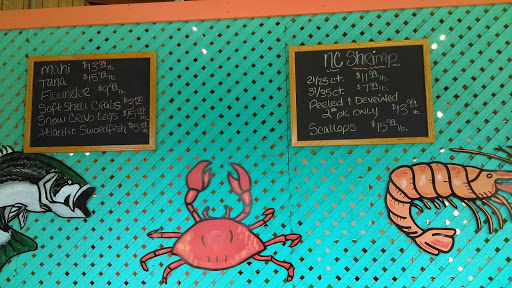 Mahi $13.99 lb.
Tuna $15.99 lb.
Flounder $9.99 lb.
Soft Shell Crabs
Snow Crab Legs
Atlantic Swordfish
NC Shrimp
21/25 ct. $11.99 lb.
31/35 ct. $7.99 lb.
Peeled & Deveined
2 lb pk. ONLY $13.99 lb.
Scallops $15.99 lb.